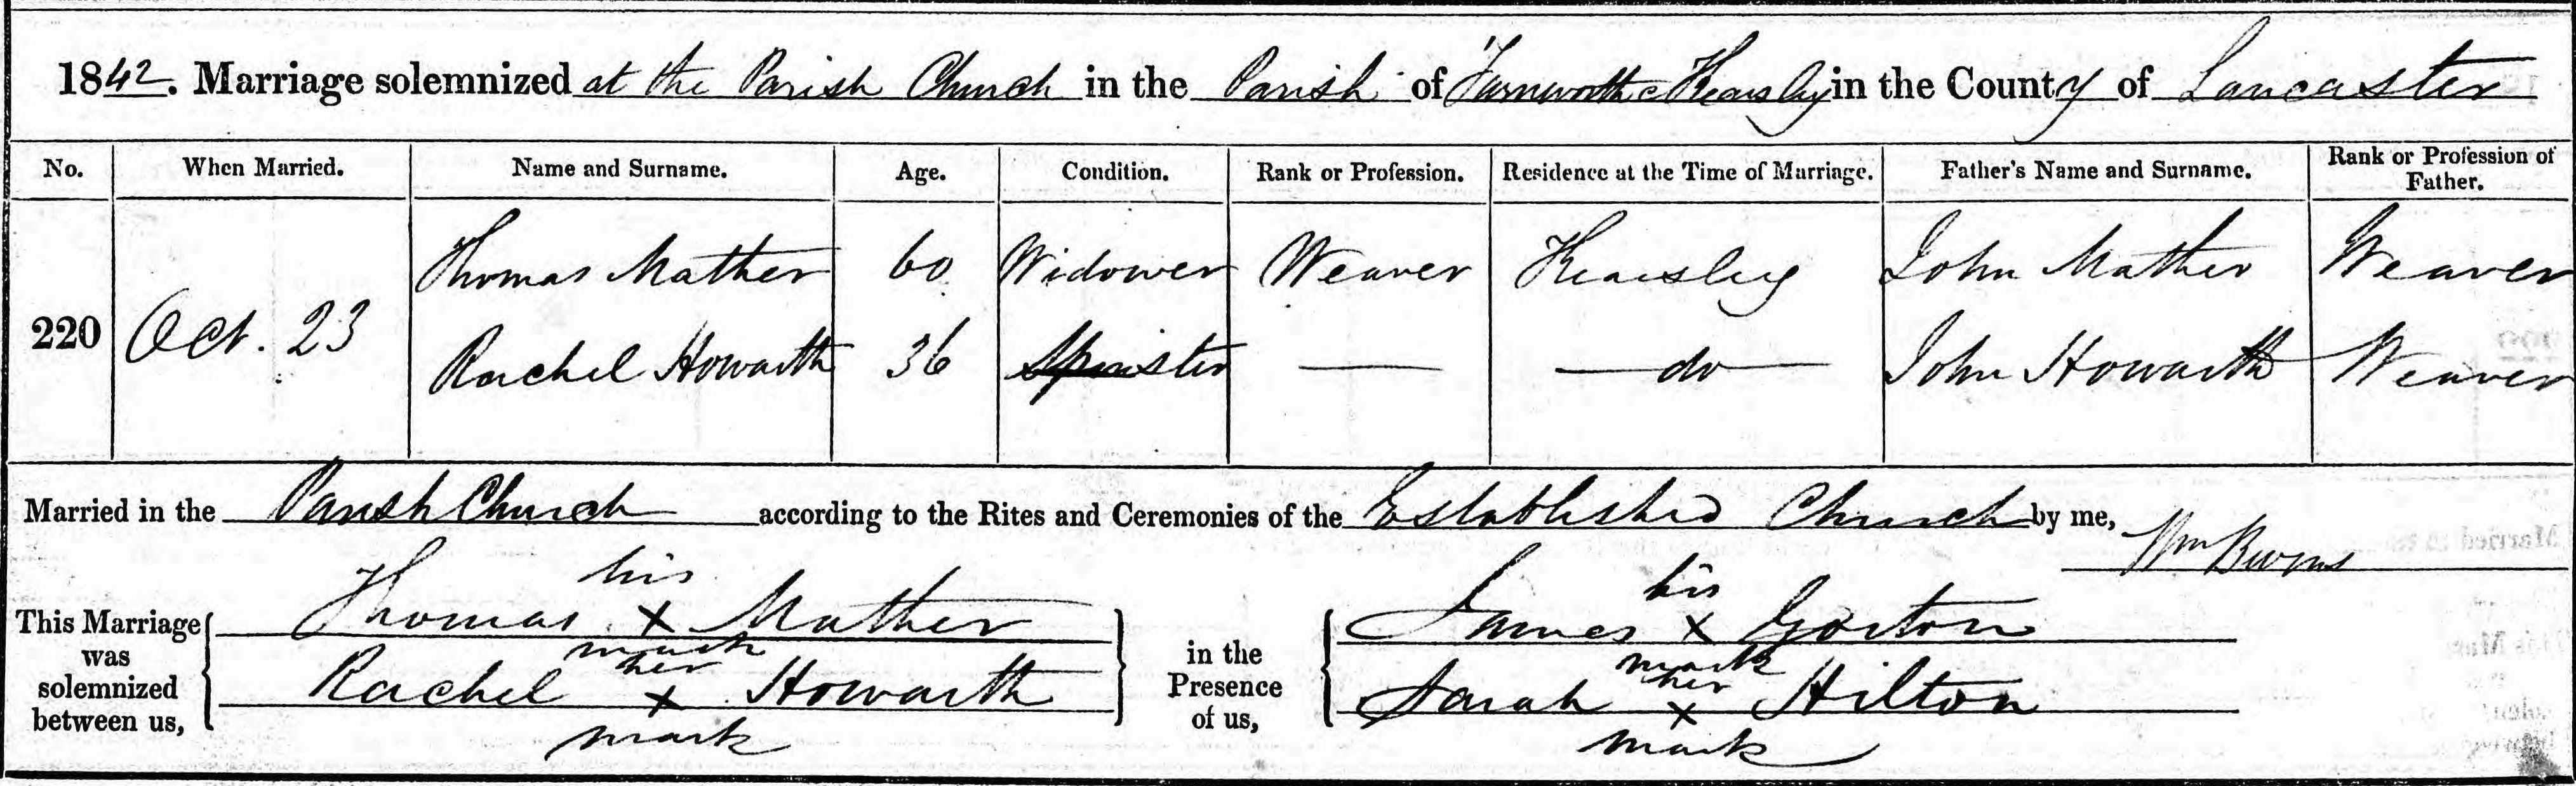 1842. Marriage solemnized at the Parish Church in the Parish of Farnworth & Kearsley in the County of Lancaster
No. When Married. Name and Surname. Age. Condition. Rank or Profession. Residence at the Time of Marriage. Father's Name and Surname. Rank or Profession of Father.
Thomas Mather 60 Widower Weaver Kearsley John Mather Weaver
220 Oct. 23
Rachel Howarth 36 Spinster — — do — John Howarth Weaver
Married in the Parish Church according to the Rites and Ceremonies of the Established Church by me, Wm Burns
This Marriage was solemnized between us,
his
Thomas x Mather
mark
her
Rachel x Howarth
mark
in the Presence of us,
his
James x Gorton
mark
her
Sarah x Hilton
mark